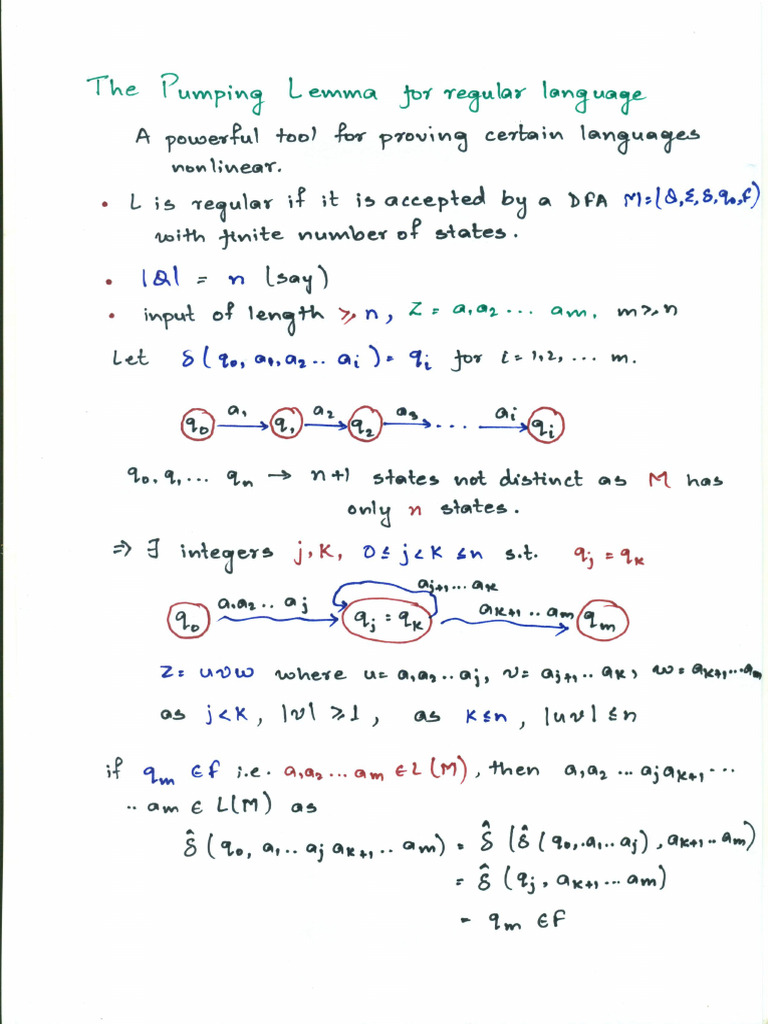 The Pumping Lemma for regular language
A powerful tool for proving certain languages
nonlinear.
• L is regular if it is accepted by a DFA M=(Q,Σ,δ,q₀,F)
with finite number of states.
• |Q| = n (say)
• input of length ⩾ n, Z = a₁a₂... aₘ, m⩾n
Let δ(q₀, a₁,a₂.. aᵢ) = qᵢ for i=1,2,... m.
q₀ a₁ q₁ a₂ q₂ a₃ .... aᵢ qᵢ
q₀, q₁... qₙ → n+1 states not distinct as M has
only n states.
⇒ ∃ integers j,k, 0≤j<k≤n s.t. qⱼ = qₖ
aⱼ₊₁...aₖ
q₀ a₁a₂.. aⱼ qⱼ = qₖ aₖ₊₁..aₘ qₘ
Z= uvw where u=a₁a₂..aⱼ, v=aⱼ₊₁..aₖ, w=aₖ₊₁...aₘ
as j<k, |v|⩾1, as k≤n, |uv|≤n
if qₘ ∈F i.e. a₁a₂...aₘ ∈L(M), then a₁a₂...aⱼaₖ₊₁...
..aₘ ∈ L(M) as
δ̂(q₀, a₁..aⱼ aₖ₊₁..aₘ) = δ̂(δ̂(q₀,a₁..aⱼ),aₖ₊₁..aₘ)
= δ̂(qⱼ, aₖ₊₁...aₘ)
= qₘ ∈F